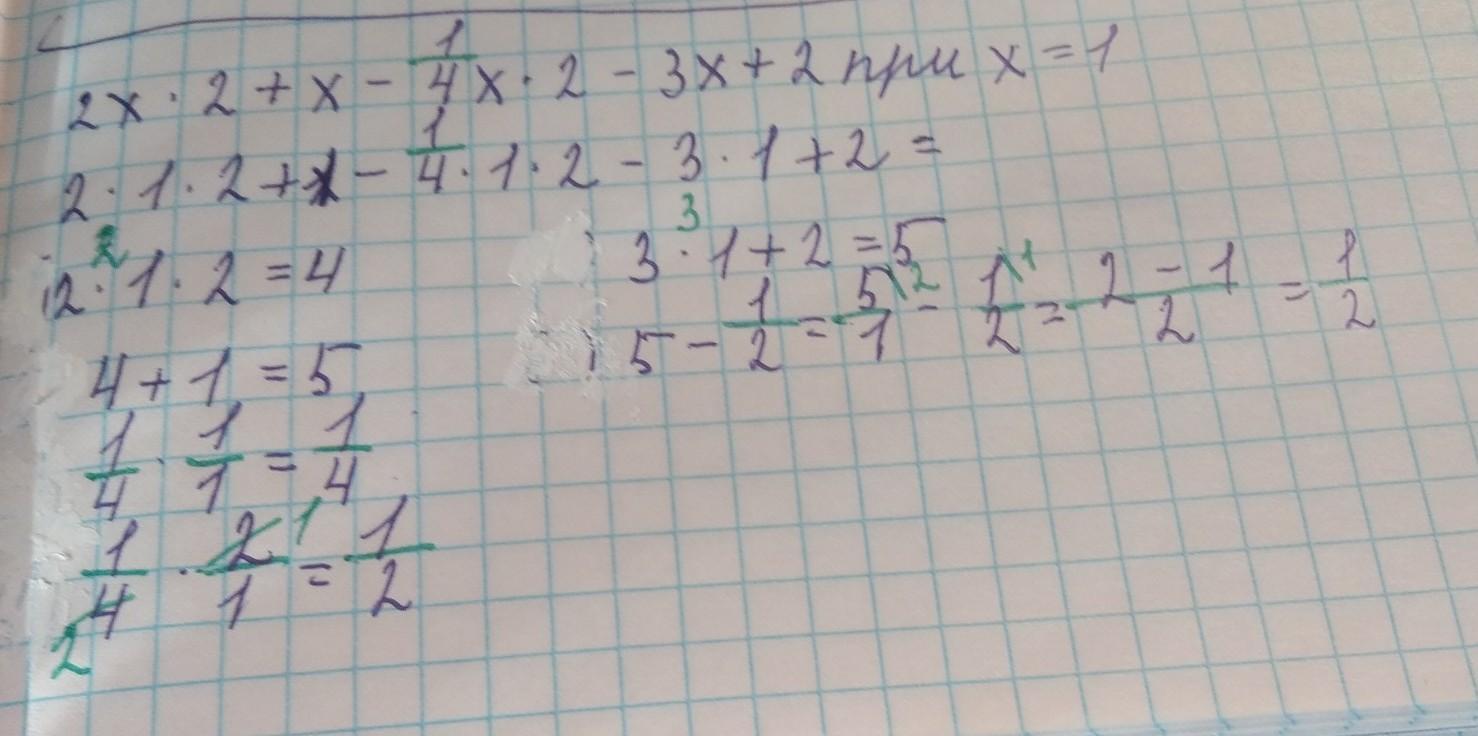 2x · 2 + x - 1/4 x · 2 - 3x + 2 при x = 1
2 · 1 · 2 + 1 - 1/4 · 1 · 2 - 3 · 1 + 2 =
2 · 1 · 2 = 4
2
4 + 1 = 5
1/4 · 1/1 = 1/4
1/4 · 2/1 = 1/2
2 1
3 · 1 + 2 = 5
3
5 - 1/2 = 5/1 \2 - 1/2 \1 = 2 - 1/2 = 1/2